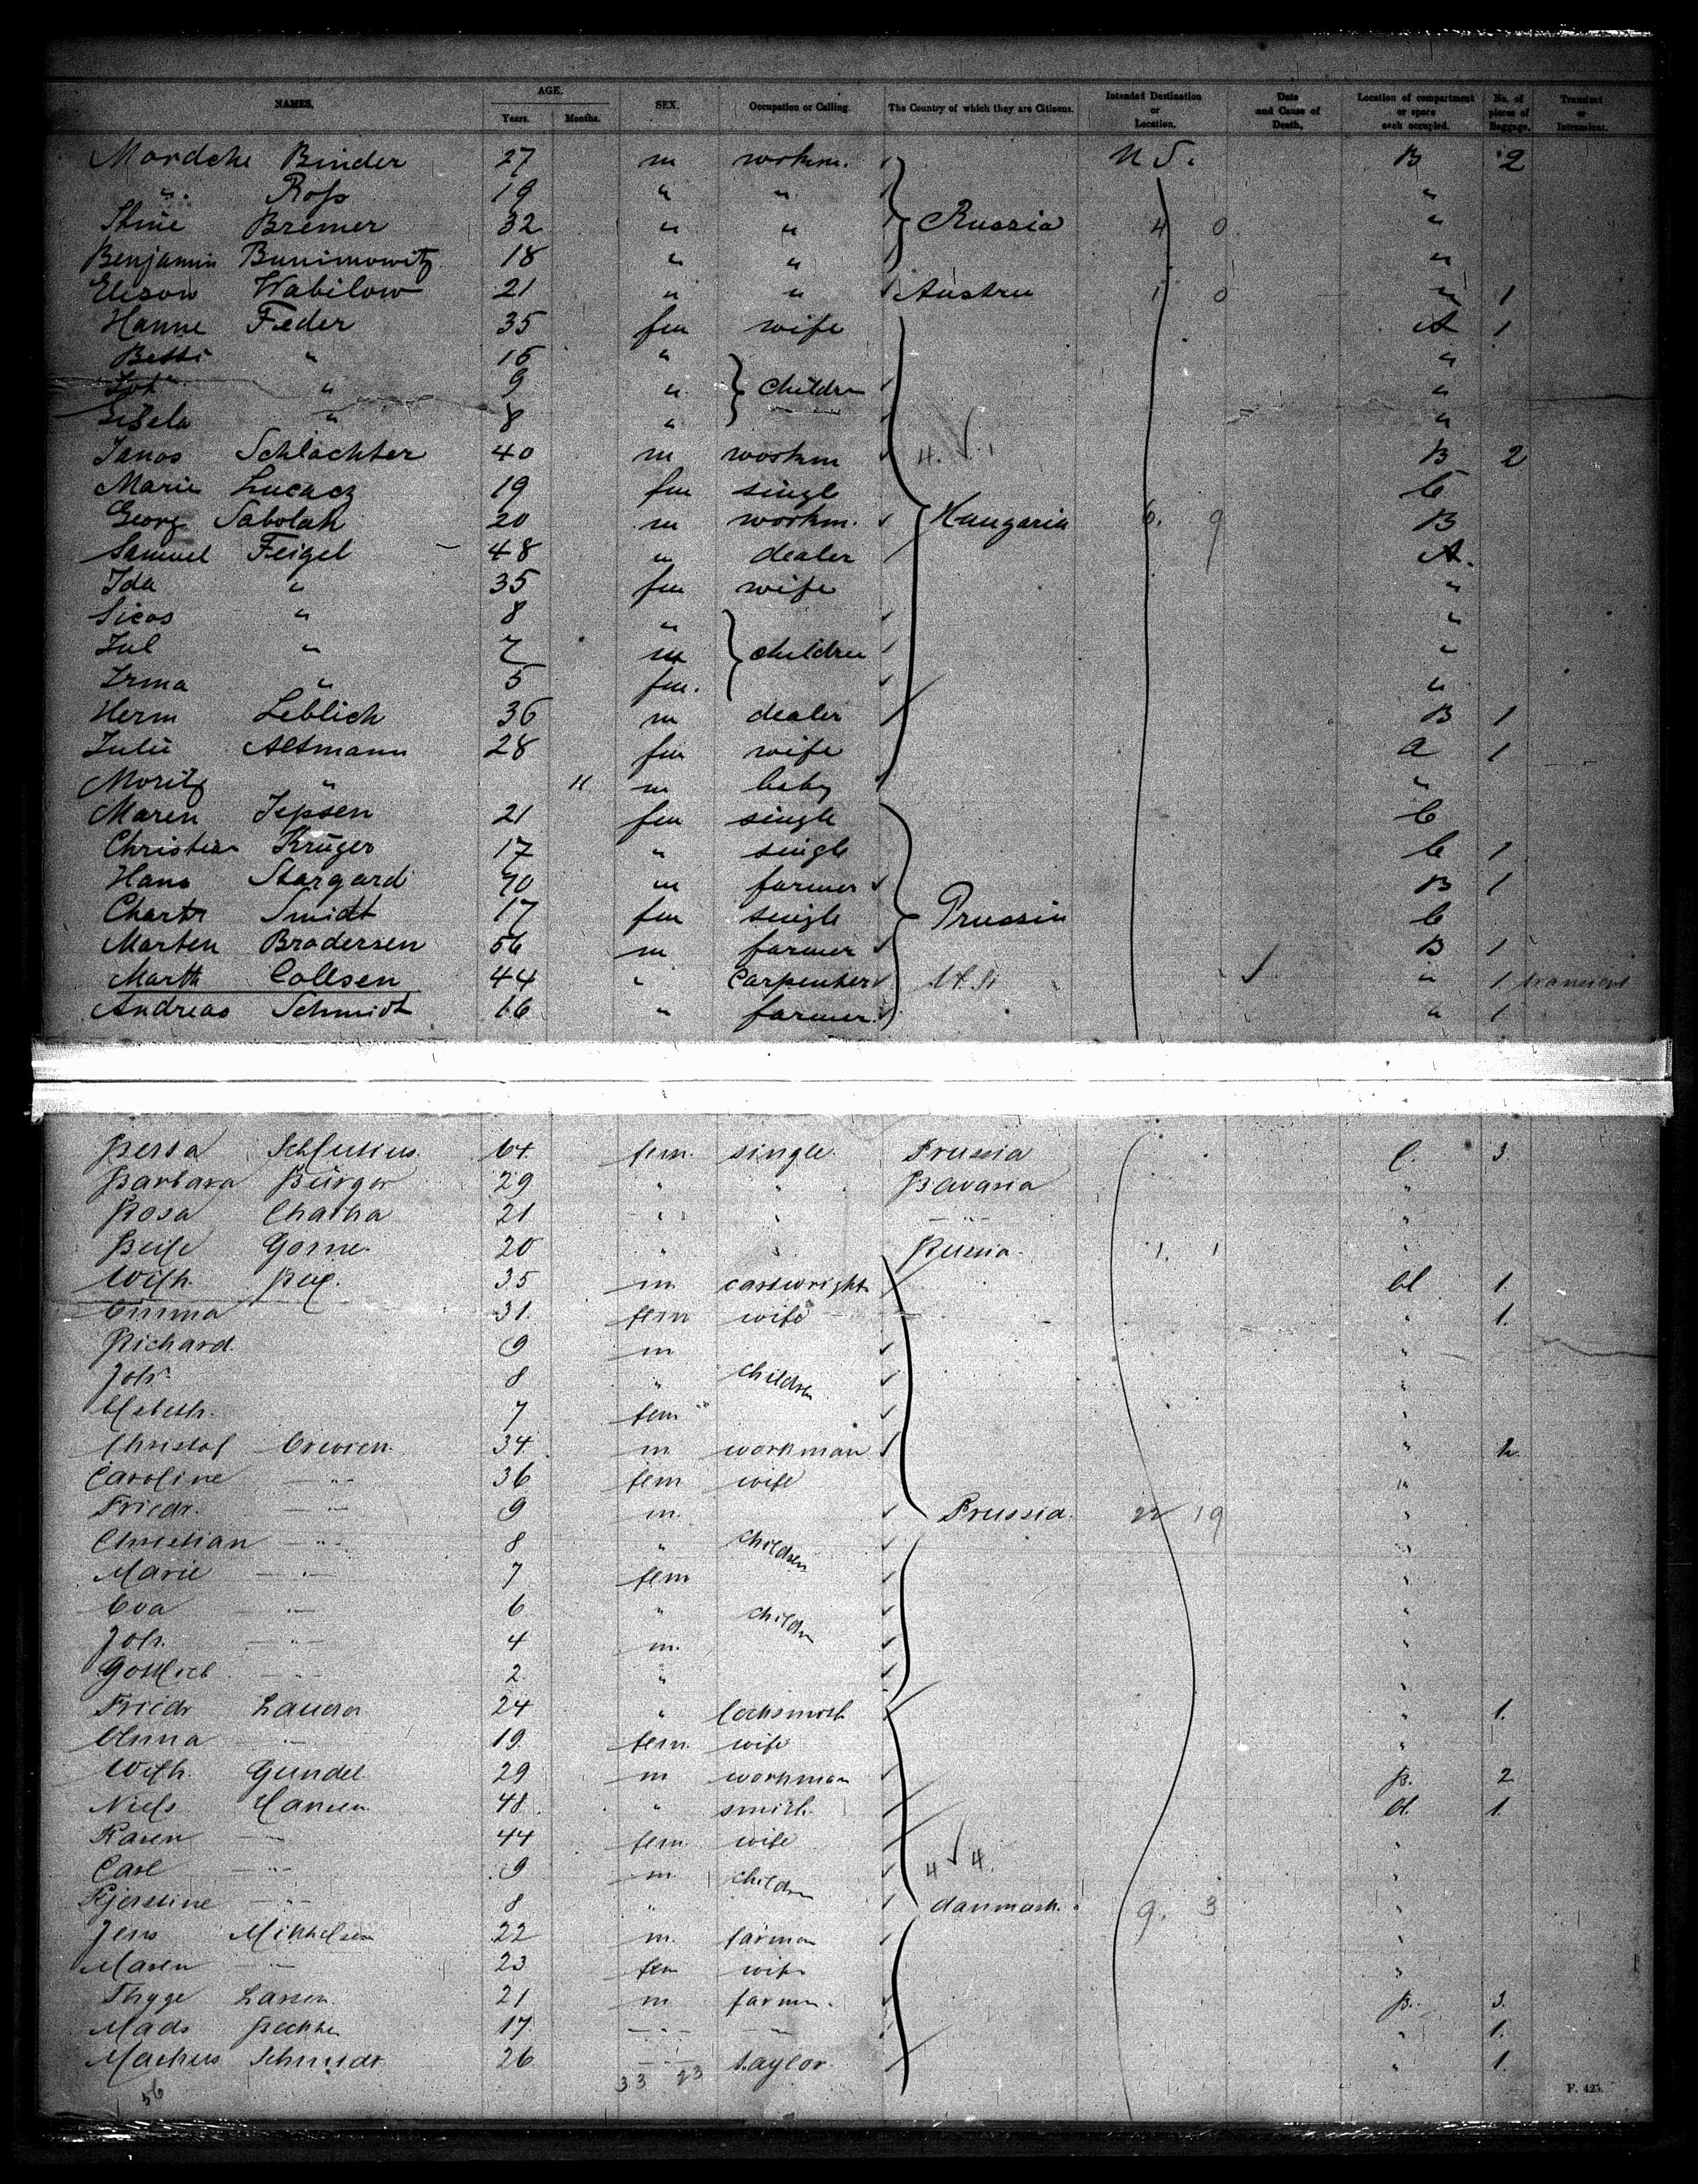 NAMES. AGE. Years. Months. SEX. Occupation or Calling. The Country of which they are Citizens. Intended Destination or Location. Date and Cause of Death. Location of compartment or space each occupied. No. of pieces of Baggage. Transient or Intransient.
Mordche Binder 27 m workm. B 2
" Ross 19 " " "
Bremer 32 " " Russia 4 0 "
Benjamin Bunimowitz 18 " " "
Elison Wabilow 21 " " Austria 1 0 " 1
Hanne Feder 35 fem wife A 1
Betti " 15 " "
" 9 " childrn "
Gisela " 8 " "
Janos Schlachter 40 m workm B 2
Marie Lucacz 19 fem single C
Georg Sabolah 20 m workm. Hungaria 6. 9 B
Samuel Feigel 48 " dealer A.
Ida " 35 fem wife "
" 8 " "
Jul " 7 m children "
Irma " 5 fem. "
Herm Leblich 36 m dealer B 1
Julie Altmann 28 fem wife a 1
Moritz " 11 m baby "
Maren Jepsen 21 fem single C
Christian Krüger 17 " single C 1
Hans Stargard 70 m farmer B 1
Smidt 17 fem single Prussia C
Marten Brodersen 56 m farmer B 1
Marth Collsen 44 " Carpenter " 1 transient
Andreas Schmidt 16 " farmer. " 1
64 fem. single. Prussia C. 3.
Barbara Bürger 29 " " Bavaria "
Rosa 21 " " — " — "
20 " " Russia. 1. 1 "
Wilh. 35 m. cartwright 1.
Emma 31. fem wife " 1.
Richard. 9 m "
Joh. 8 " children "
7 fem "
Christof 34. m. workman "
Caroline — " — 36 fem wife "
Friedr. — " — 9 m. Prussia. 22 19 "
Christian — " — 8 " children "
Marie — " — 7 fem "
Eva — " — 6 " childrn "
Joh. — " — 4 m. "
Gottlieb — " — 2. " "
Friedr 24 " locksmith " 1.
Anna — " — 19. fem. wife "
Wilh. Gundel 29 m workman B. 2
Niels Hansen 48. " smith. 1.
Karen — " — 44 fem. wife "
Carl — " — 9 m childrn 4 4. "
Kjerstine — " — 8 " danmark. 9. 3 "
Jens Mikkelsen 22 m. farmer "
Maren — " — 23 fem wife "
Thyge Larsen. 21 m farmer. B. 3.
Mads 17. — " — — " — " 1.
Schmidt 26 — " — taylor. " 1.
33 23
56 F. 425.